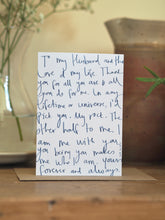 To my Husband and the
Love of my life. Thank
you for all you are & all
you do for me. In any
lifetime or universe, I'd
pick you. My rock. The
other half to me. I
am me with you,
you being you makes
me who I am. yours
forever and always